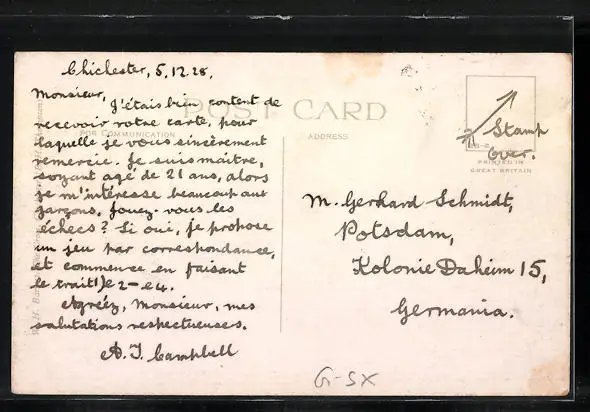 Chichester, 5.12.28.
Monsieur,
J'étais bien content de
recevoir votre carte, pour
laquelle je vous sincèrement
remercie. Je suis maître,
soyant agé de 21 ans, alors
je m'intéresse beaucoup aux
garçons, Jouez-vous les
échecs? Si oui, je propose
un jeu par correspondance,
et commence en faisant
le trait 1) e2-e4.
Agréez, Monsieur, mes
salutations respectueuses.
A. J. Campbell
POST CARD
FOR COMMUNICATION
ADDRESS
Stamp
Over.
PRINTED IN
GREAT BRITAIN
M. Gerhard Schmidt,
Potsdam,
Kolonie Daheim 15,
Germania.
G-SX